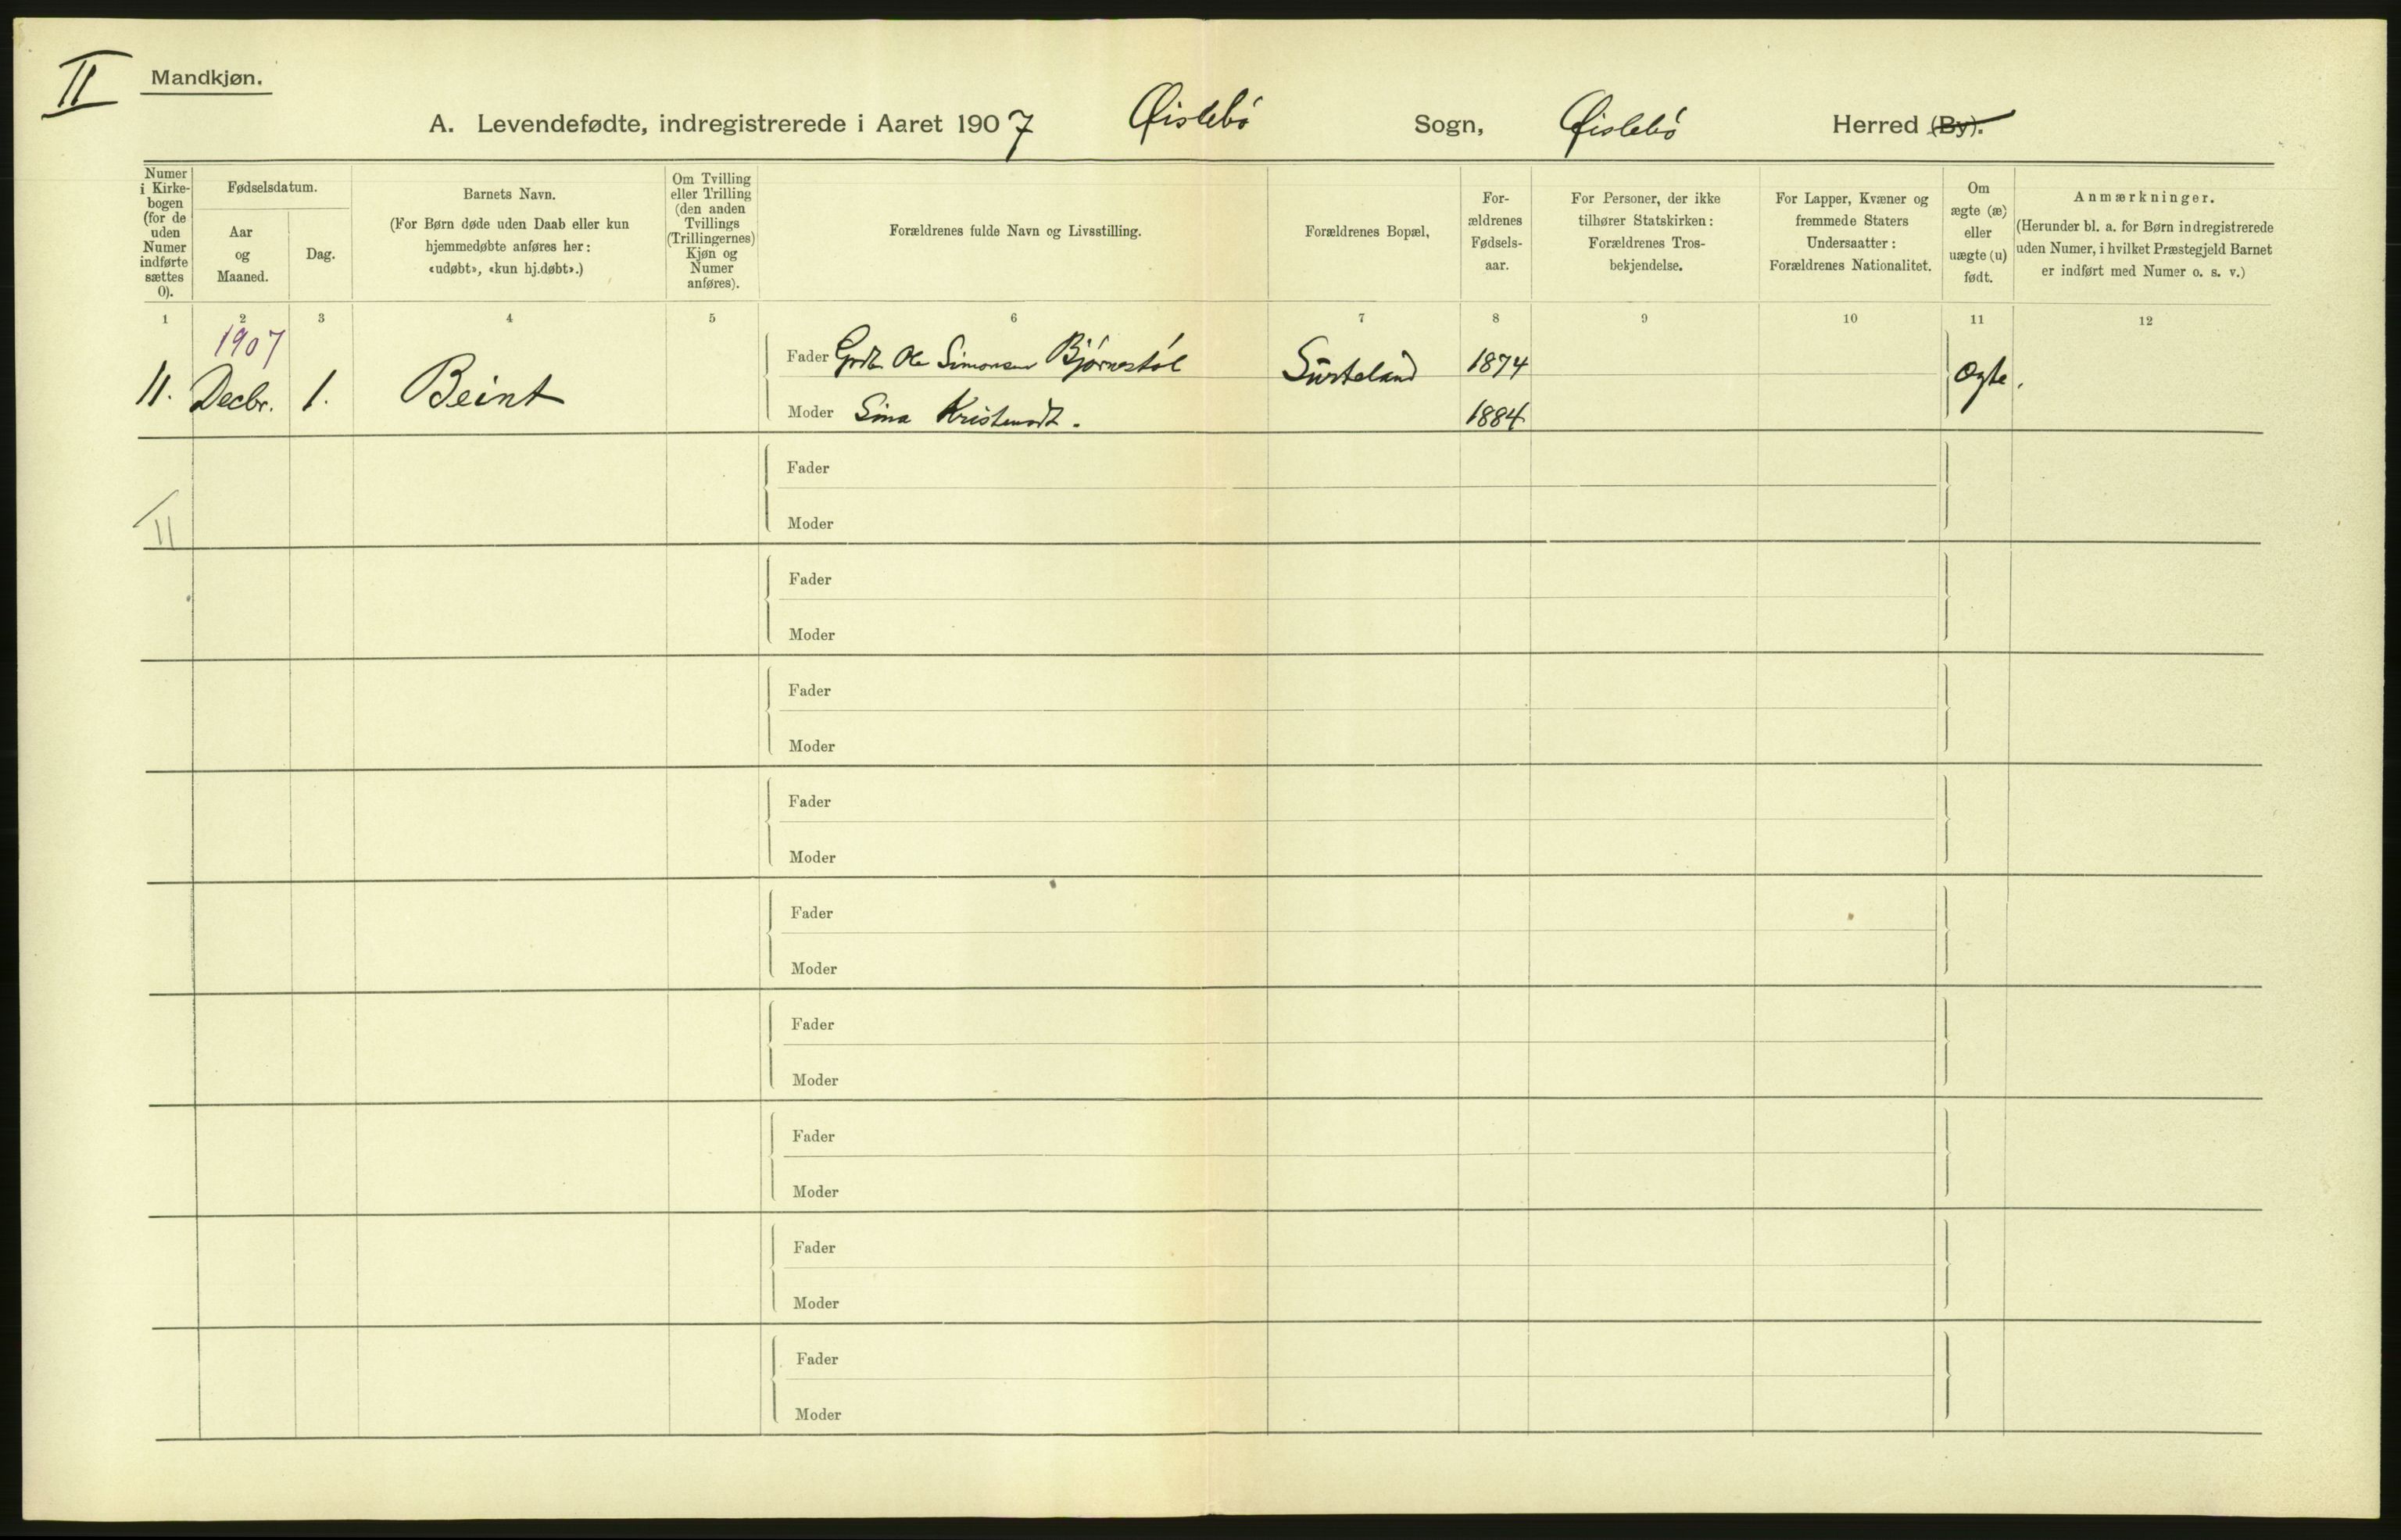 II
Mandkjøn.
A. Levendefødte, indregistrerede i Aaret 1907 Øislebö Sogn, Øislebö Herred (By).
Numer i Kirkebogen (for de uden Numer indførte sættes 0).
Fødselsdatum.
Aar og Maaned.
Dag.
Barnets Navn.
(For Børn døde uden Daab eller kun
hjemmedøbte anføres her:
«udøbt», «kun hj.døbt».)
Om Tvilling
eller Trilling
(den anden
Tvillings
(Trillingernes)
Kjøn og
Numer
anføres).
Forældrenes fulde Navn og Livsstilling.
Forældrenes Bopæl,
For-
ældrenes
Fødsels-
aar.
For Personer, der ikke
tilhører Statskirken:
Forældrenes Tros-
bekjendelse.
For Lapper, Kvæner og
fremmede Staters
Undersaatter:
Forældrenes Nationalitet.
Om
ægte (æ)
eller
uægte (u)
født.
Anmærkninger.
(Herunder bl. a. for Børn indregistrerede
uden Numer, i hvilket Præstegjeld Barnet
er indført med Numer o. s. v.)
1 2 3 4 5 6 7 8 9 10 11 12
1907
11. Decbr. 1. Beint
Fader Ole Simonsen Bjørnestøl Surteland 1874
Moder Sina 1884
Ægte.
11
Fader
Moder
Fader
Moder
Fader
Moder
Fader
Moder
Fader
Moder
Fader
Moder
Fader
Moder
Fader
Moder
Fader
Moder